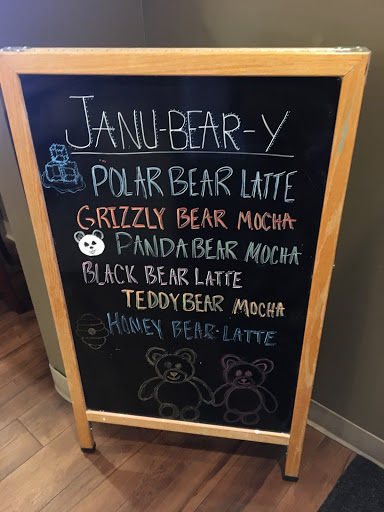 JANU-BEAR-Y
POLAR BEAR LATTE
GRIZZLY BEAR MOCHA
PANDA BEAR MOCHA
BLACK BEAR LATTE
TEDDY BEAR MOCHA
HONEY BEAR LATTE